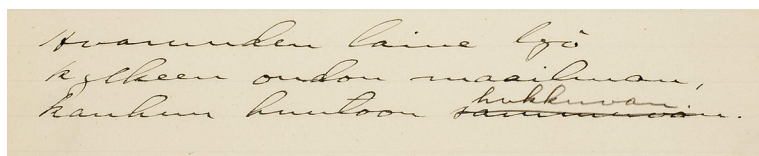 Avaruuden laine lyö
kylkeen oudon maailman,
hukkuvan.
kauhun huutoon sammuvan.